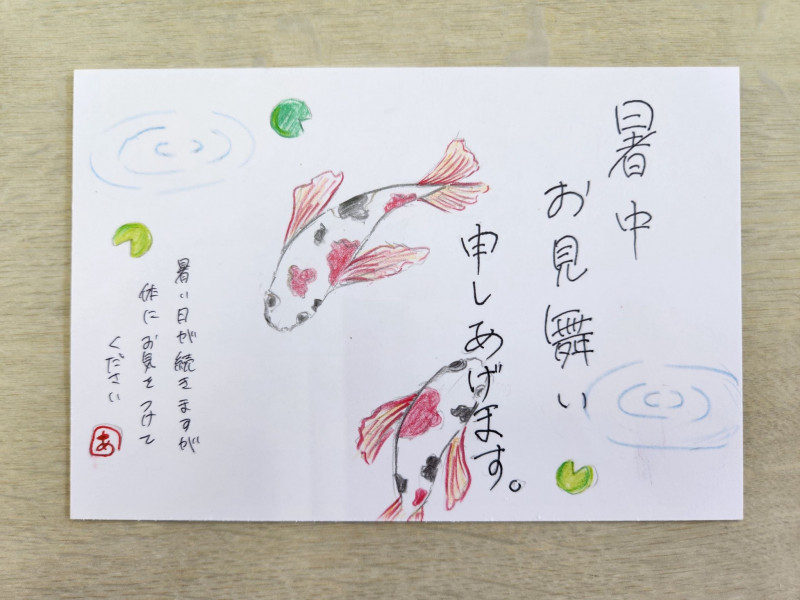 暑中
お見舞い
申しあげます。
暑い日が続きますが
体にお気をつけて
ください
あ